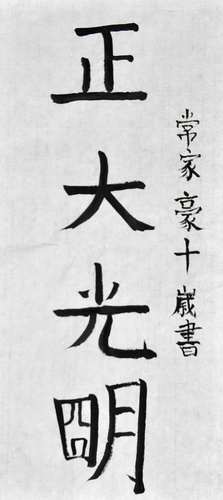 正大光明
常家豪十歲書